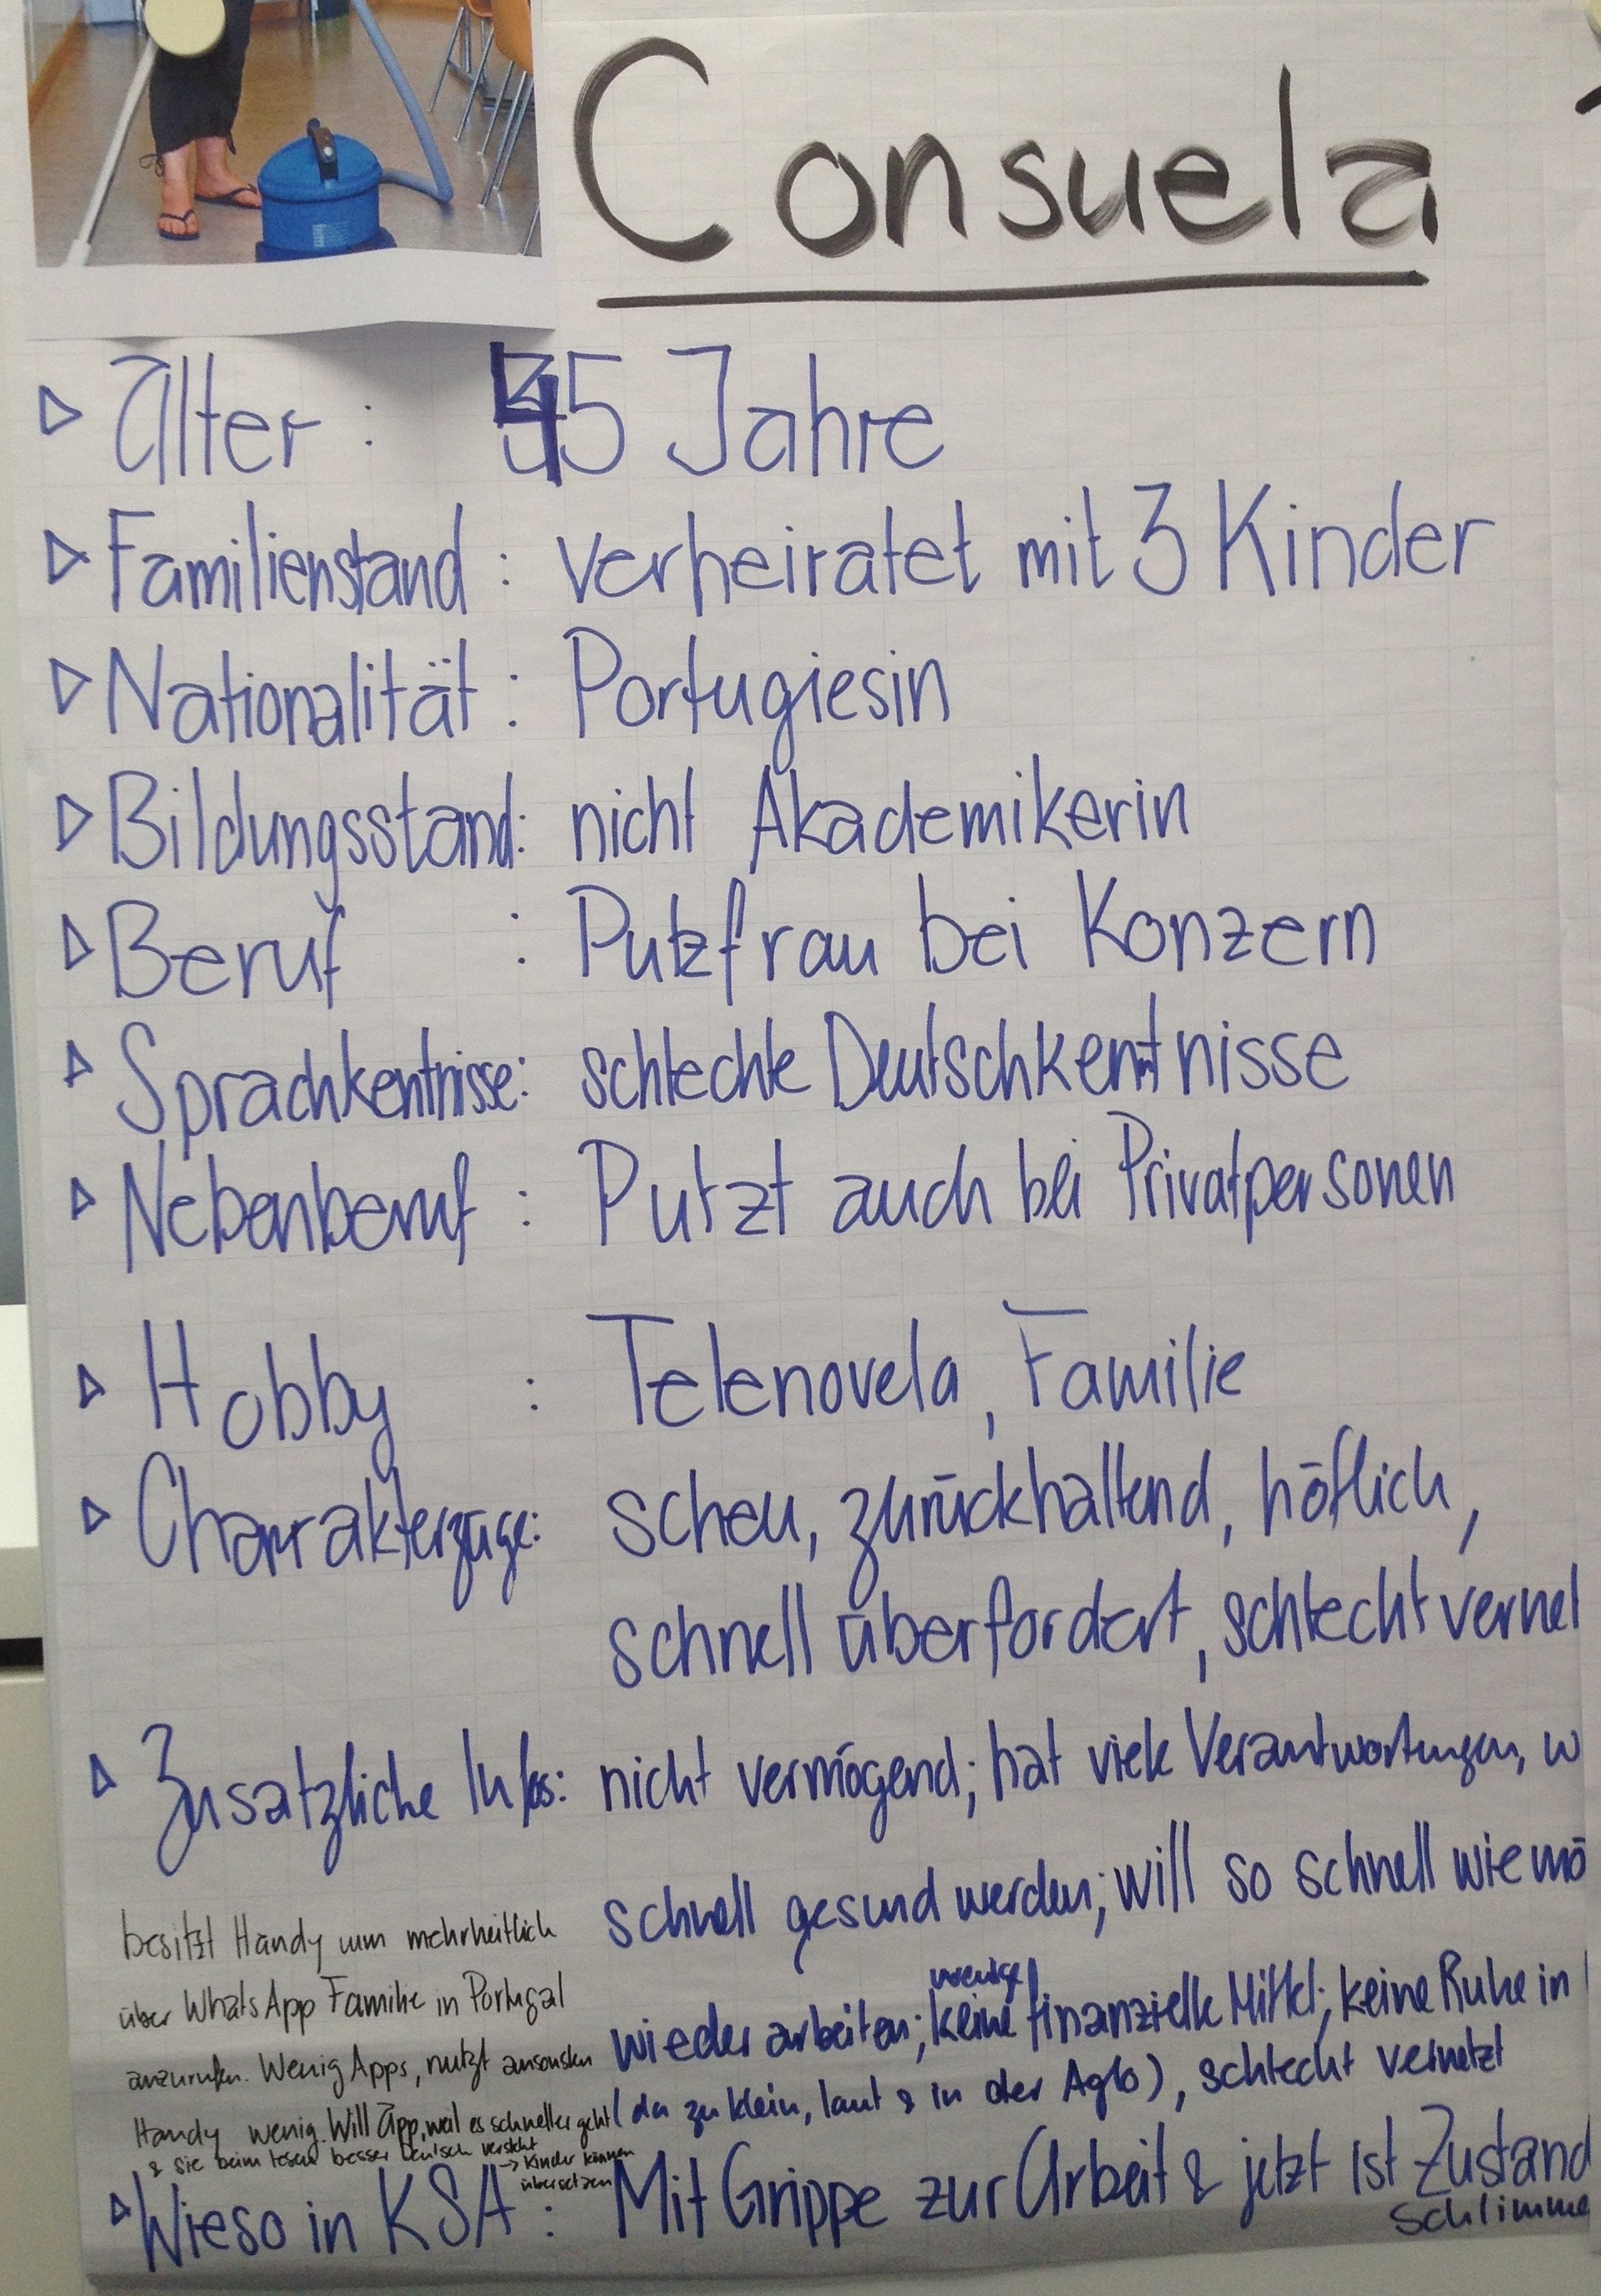 Consuela
Alter : 45 Jahre
Familienstand : verheiratet mit 3 Kinder
Nationalität : Portugiesin
Bildungsstand: nicht Akademikerin
Beruf : Putzfrau bei Konzern
Sprachkentnisse: schlechte Deutschkentnisse
Nebenberuf : Putzt auch bei Privatpersonen
Hobby : Telenovela, Familie
Charrakterzüge: scheu, zurückhaltend, höflich,
schnell überfordert, schlecht vernet
Zusätzliche Infos: nicht vermögend; hat viele Verantwortungen, w
schnell gesund werden; will so schnell wie mö
wieder arbeiten; keine wenige finanzielle Mittel; keine Ruhe in
(da zu klein, laut & in der Aglo), schlecht vernetzt
besitzt Handy um mehrheitlich
über WhatsApp Familie in Portugal
anzurufen. Wenig Apps, nutzt ansonsten
Handy wenig. Will App, weil es schneller geht
& sie beim lesen besser Deutsch versteht
→ Kinder können
übersetzen
Wieso in KSA : Mit Grippe zur Arbeit & jetzt ist Zustand
schlimme